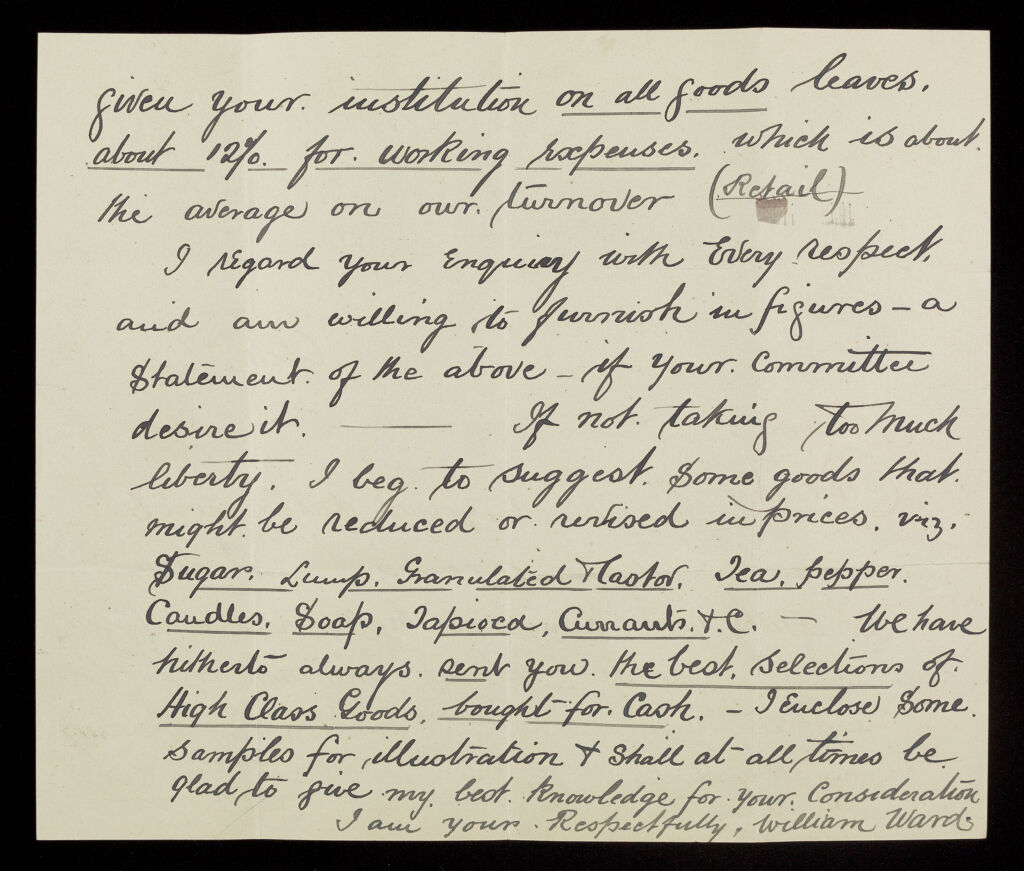 given your institution on all goods leaves.
about 12%. for working expenses. which is about.
the average on our turnover (Retail)
I regard your Enquiry with Every respect,
and am willing to furnish in figures – a
Statement of the above – if your Committee
desire it. — If not taking too much
liberty. I beg to suggest. Some goods that.
might be reduced or revised in prices. viz.
Sugar. Lump. Granulated & Castor. Tea. pepper.
Candles. Soap. Tapioca, Currants. & C. — We have
hitherto always. sent you. the best. Selections of.
High Class Goods. bought for. Cash. – I Enclose Some.
samples for illustration & Shall at all times be
glad to give my best. Knowledge for your. Consideration
I am yours Respectfully, William Ward.